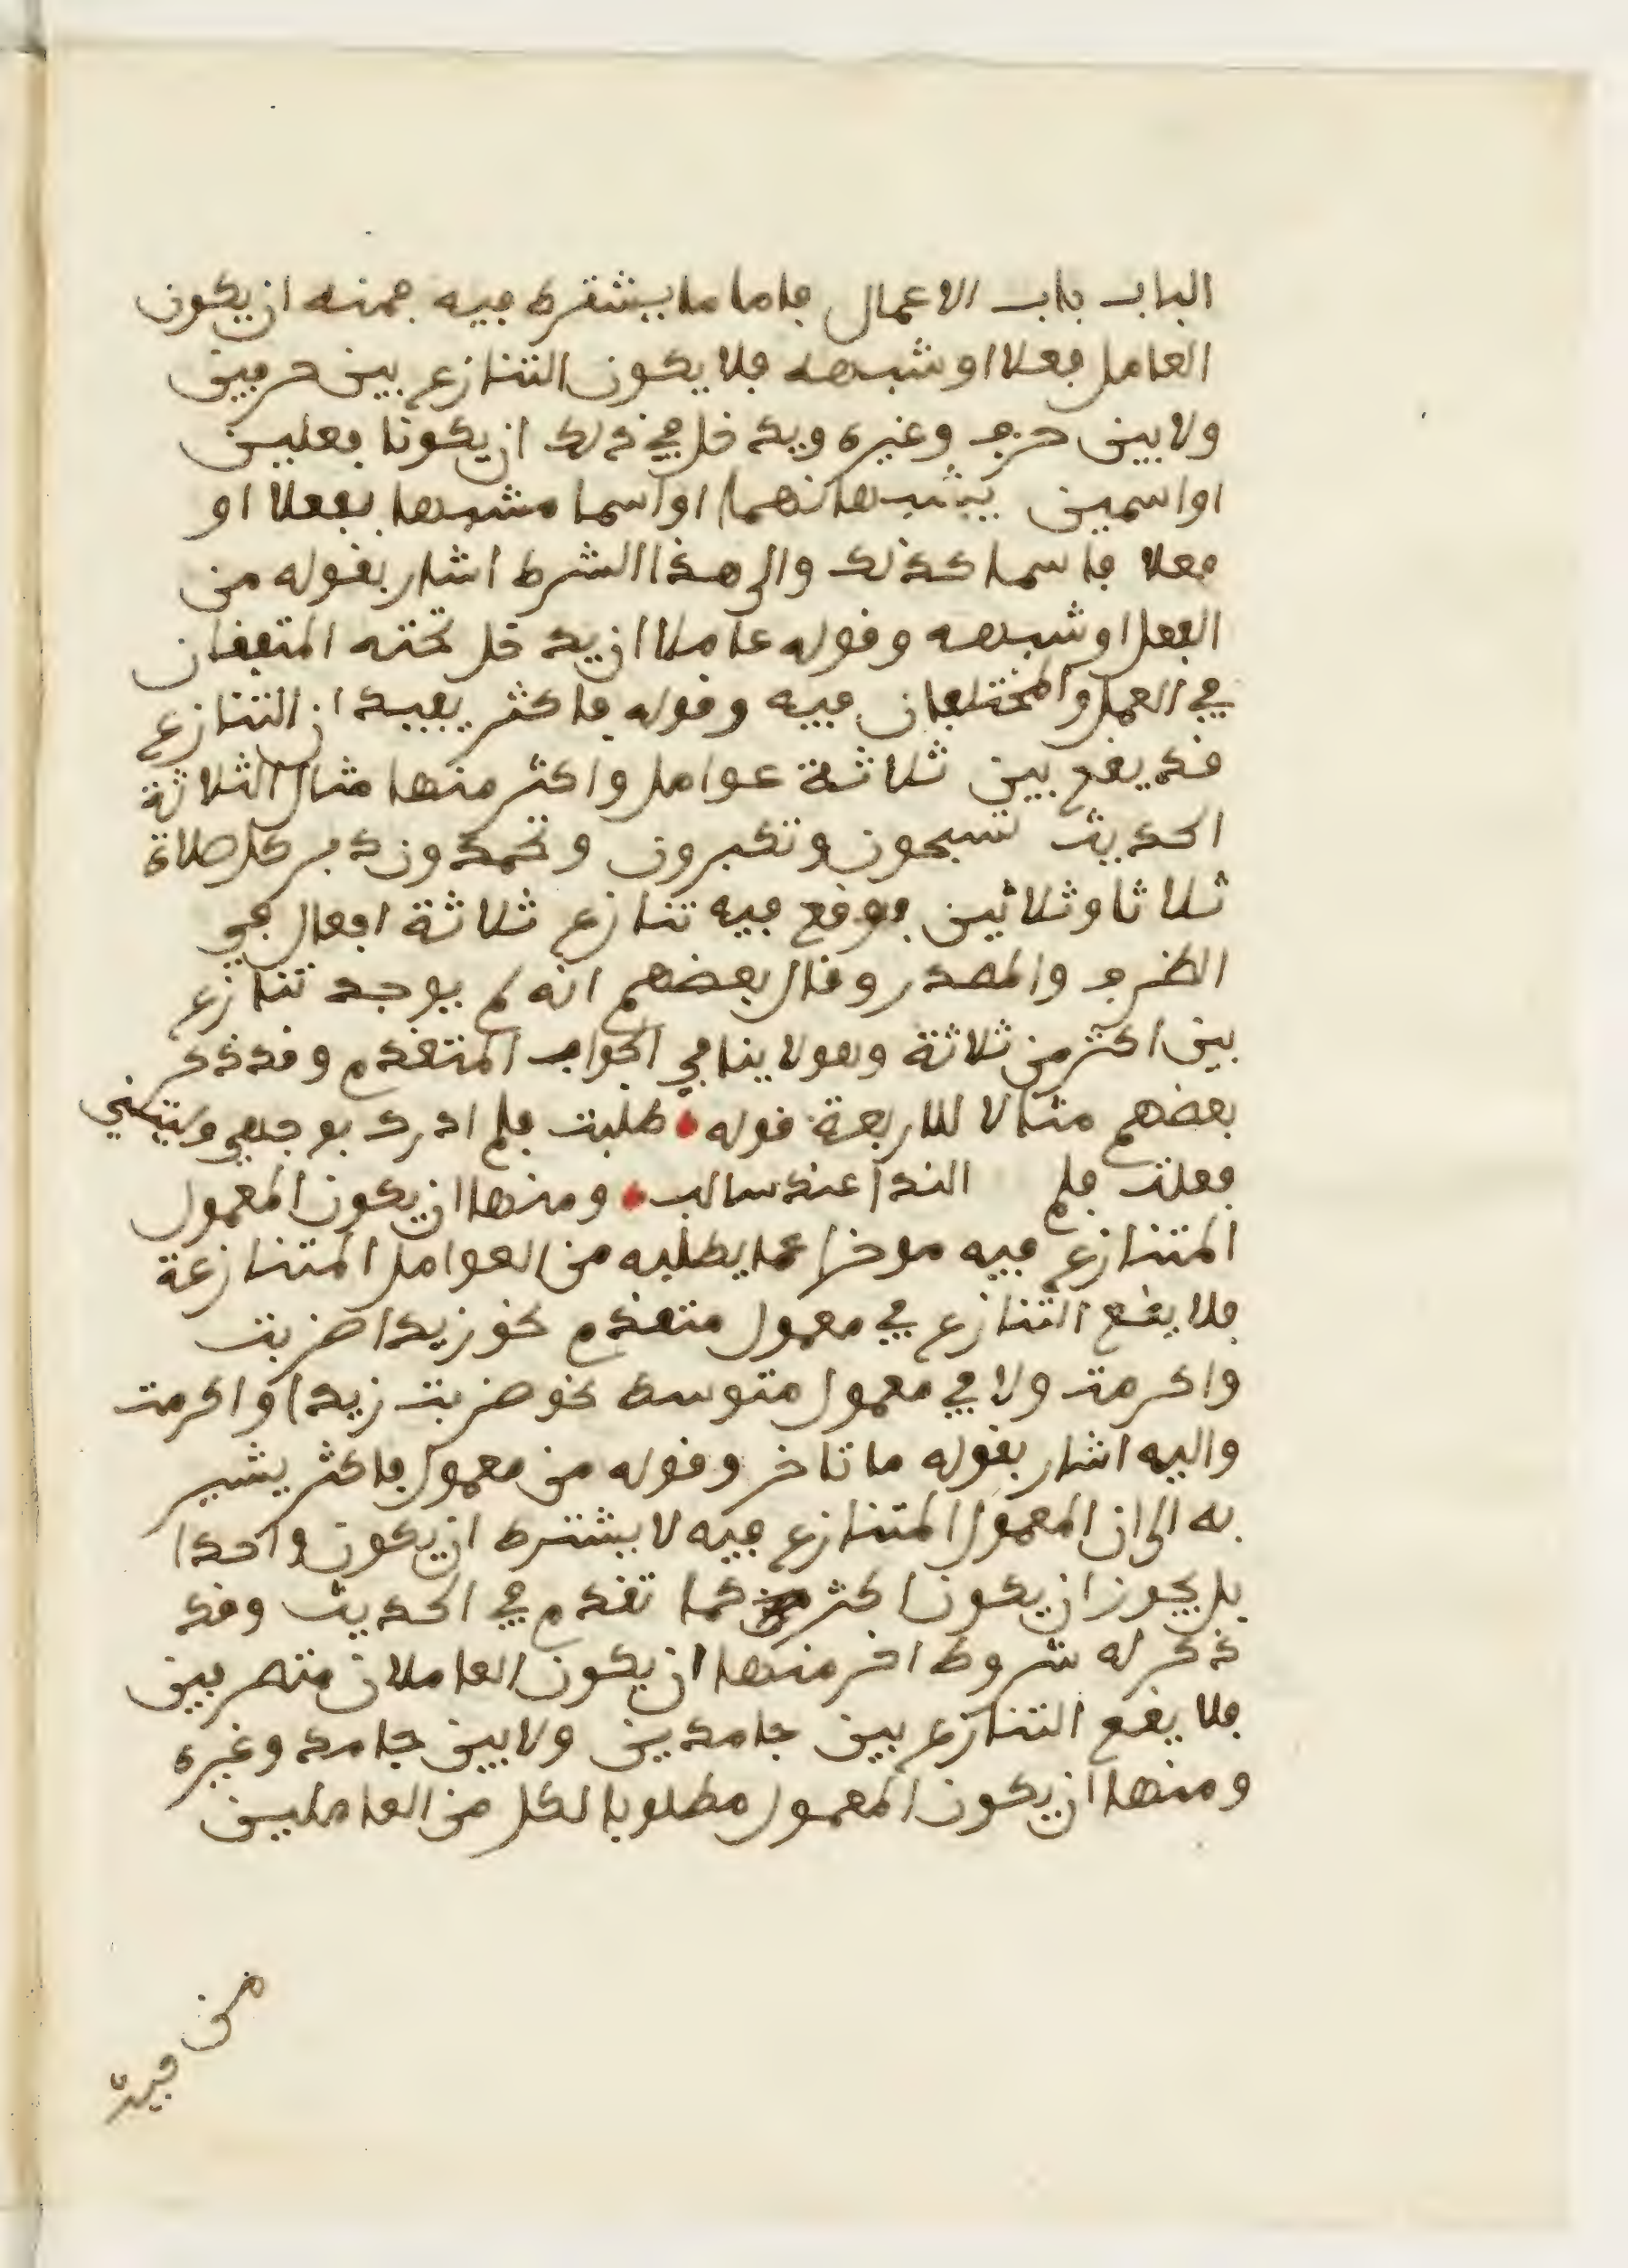 الباب باب الاعمال فاما ما يشترط فيه فمنه ان يكون
العامل فعلا او شبهه فلا يكون التنازع بين حرفين
ولا بين حرف وغيره ويدخل في ذلك ان يكونا فعلين
او اسمين يشبهانهما او اسما مشبها بفعلا او
فعلا فاسما كذلك والى هذا الشرط اشار بقوله من
الفعل او شبهه وقوله عاملا ان يدخل تحته المتفقان
في العمل والمختلفان فيه وقوله فاكثر يفيد ان التنازع
قد يقع بين ثلاثة عوامل واكثر منها مثال الثلاثة
الحديث تسبحون وتكبرون وتحمدون دبر كل صلاة
ثلاثا وثلاثين فوقع فيه تنازع ثلاثة افعال في
الظرف والمصدر وقال بعضهم انه لم يوجد تنازع
بين اكثر من ثلاثة وهو لا ينافي الجواب المتقدم وقد ذكر
بعضهم مثالا للاربعة قوله طلبت فلم ادرك بوجهي وليتني
فعلت فلم الندا عند سالب ومنها ان يكون المعمول
المتنازع فيه موخرا عما يطلبه من العوامل المتنازعة
فلا يقع التنازع في معمول متقدم نحو زيدا ضربت
واكرمت ولا في معمول متوسط نحو ضربت زيدا واكرمت
واليه اشار بقوله ما تاخر وقوله من معمول فاكثر يشير
به الى ان المعمول المتنازع فيه لا يشترط ان يكون واحدا
بل يجوز ان يكون اكثر كما تقدم في الحديث وقد
ذكر له شروط اخر منها ان يكون العاملان متصرفين
فلا يقع التنازع بين جامدين ولا بين جامد وغيره
ومنها ان يكون المعمول مطلوبا لكل من العاملين
من